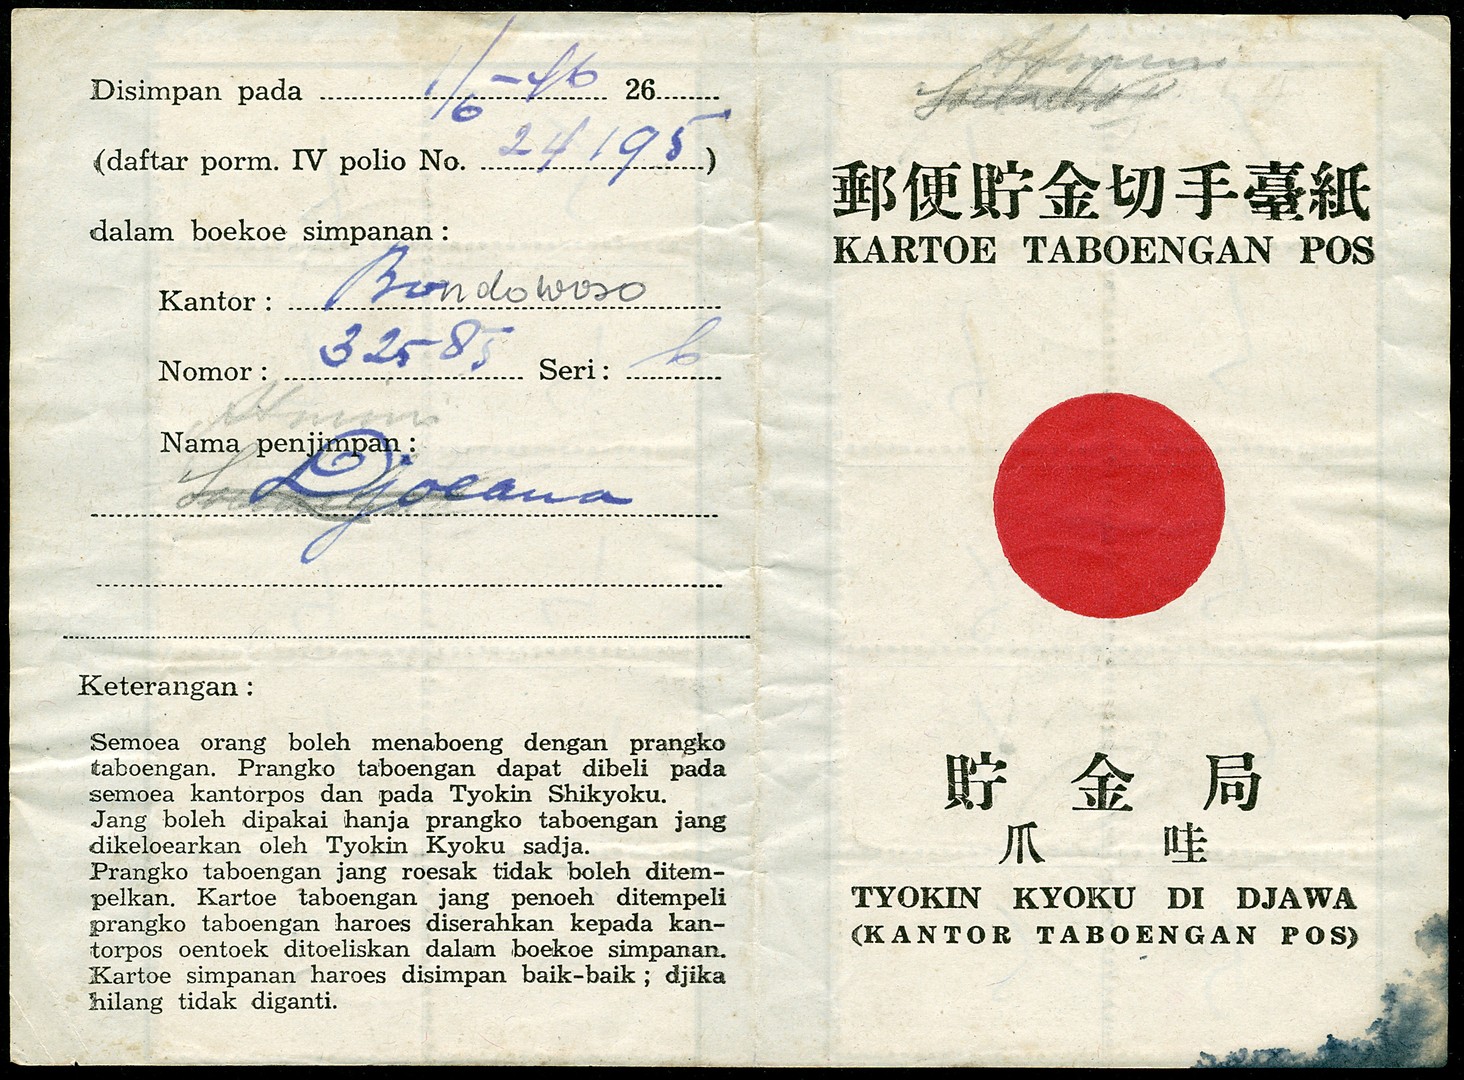 Disimpan pada 1/6-46 26
(daftar porm. IV polio No. 24195)
dalam boekoe simpanan:
Kantor: Bondowoso
Nomor: 32585 Seri: b
Nama penjimpan:
Djoeana
Keterangan:
Semoea orang boleh menaboeng dengan prangko
taboengan. Prangko taboengan dapat dibeli pada
semoea kantorpos dan pada Tyokin Shikyoku.
Jang boleh dipakai hanja prangko taboengan jang
dikeloearkan oleh Tyokin Kyoku sadja.
Prangko taboengan jang roesak tidak boleh ditem-
pelkan. Kartoe taboengan jang penoeh ditempeli
prangko taboengan haroes diserahkan kepada kan-
torpos oentoek ditoeliskan dalam boekoe simpanan.
Kartoe simpanan haroes disimpan baik-baik; djika
hilang tidak diganti.
郵便貯金切手臺紙
KARTOE TABOENGAN POS
貯金局
爪哇
TYOKIN KYOKU DI DJAWA
(KANTOR TABOENGAN POS)